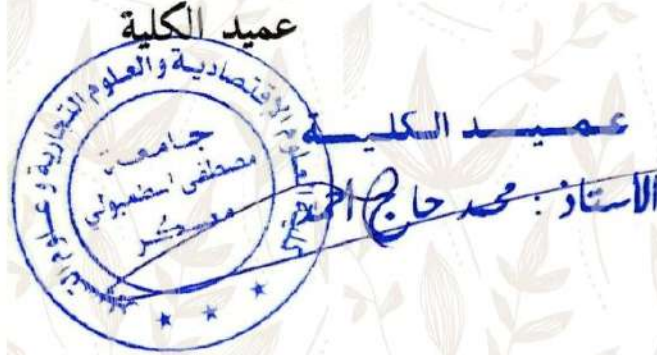 عميد الكلية
كلية العلوم الاقتصادية والعلوم التجارية وعلوم
جامعة
مصطفى اسطمبولي
معسكر
عميد الكلية
الأستاذ : محمد حاج احمد